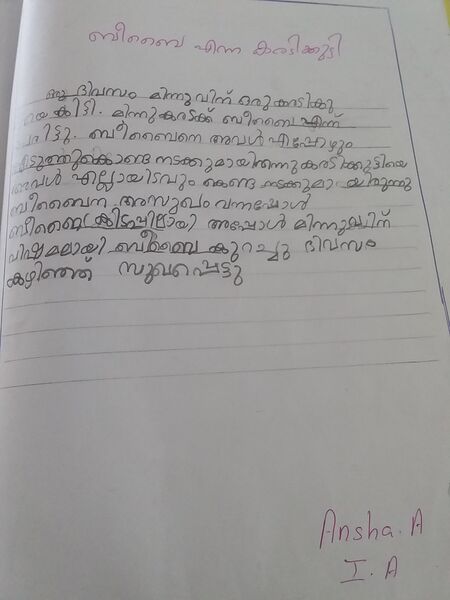 ബീബൈ എന്ന കരടിക്കുട്ടി
ഒരു ദിവസം മിന്നുവിന് ഒരു കരടികു
യെ കിട്ടി. മിന്നു കരടക്ക് ബീബൈ എന്ന്
പേരിട്ടു. ബീബൈനെ അവൾ എപ്പോഴും
എടുത്തുകൊണ്ടേ നടക്കുമായിരുന്നു കരടിക്കുട്ടിയെ
അവൾ എല്ലായിടവും കൊണ്ടേ നടക്കുമായിരുന്നു
ബീബൈന അസുഖം വന്നപ്പോൾ
ബീബൈ കിടപ്പിലായി അപ്പോൾ മിന്നുവിന്
വിഷമമലായി ബീബൈ കുറച്ചു ദിവസം
കഴിഞ്ഞ് സുഖപ്പെട്ടു
Ansha. A
I. A